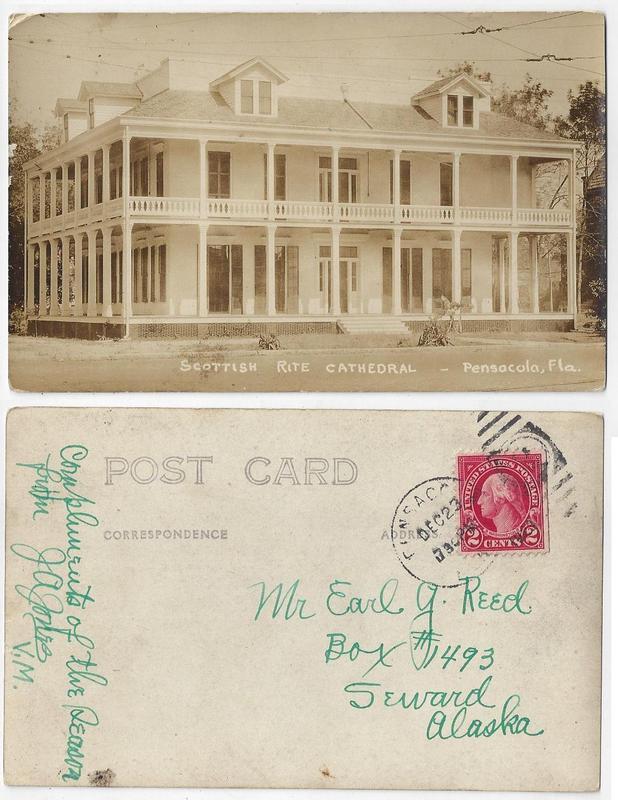 SCOTTISH RITE CATHEDRAL - Pensacola, Fla.
POST CARD
CORRESPONDENCE
ADDRESS
UNITED STATES POSTAGE
2 CENTS 2
PENSACO
DEC 23
Compliments of the Season
from J A Jones
V.M.
Mr Earl G. Reed
Box #1493
Seward
Alaska